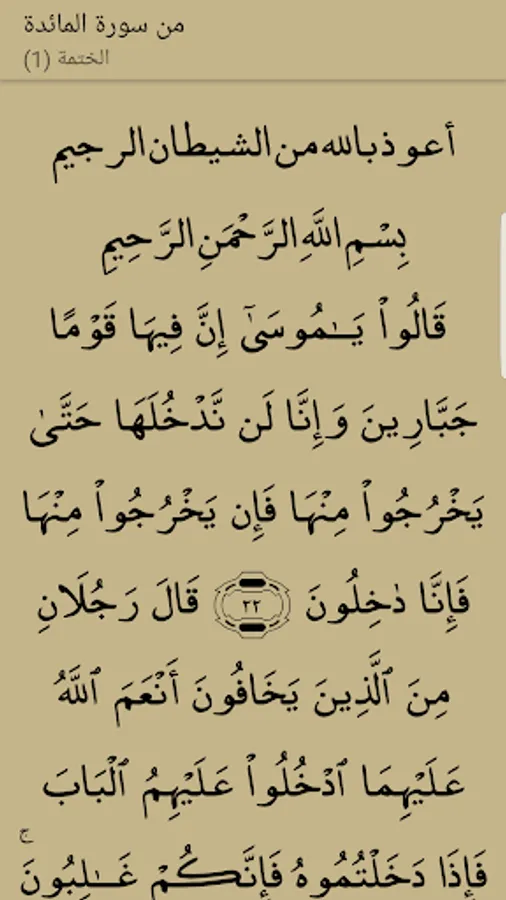 من سورة المائدة
الختمة (1)
أعوذ بالله من الشيطان الرجيم
بِسْمِ اللَّهِ الرَّحْمَنِ الرَّحِيمِ
قَالُوا۟ يَـٰمُوسَىٰٓ إِنَّ فِيهَا قَوْمًا
جَبَّارِينَ وَإِنَّا لَن نَّدْخُلَهَا حَتَّىٰ
يَخْرُجُوا۟ مِنْهَا فَإِن يَخْرُجُوا۟ مِنْهَا
فَإِنَّا دَٰخِلُونَ ٢٢ قَالَ رَجُلَانِ
مِنَ ٱلَّذِينَ يَخَافُونَ أَنْعَمَ ٱللَّهُ
عَلَيْهِمَا ٱدْخُلُوا۟ عَلَيْهِمُ ٱلْبَابَ
فَإِذَا دَخَلْتُمُوهُ فَإِنَّكُمْ غَـٰلِبُونَ ۚ